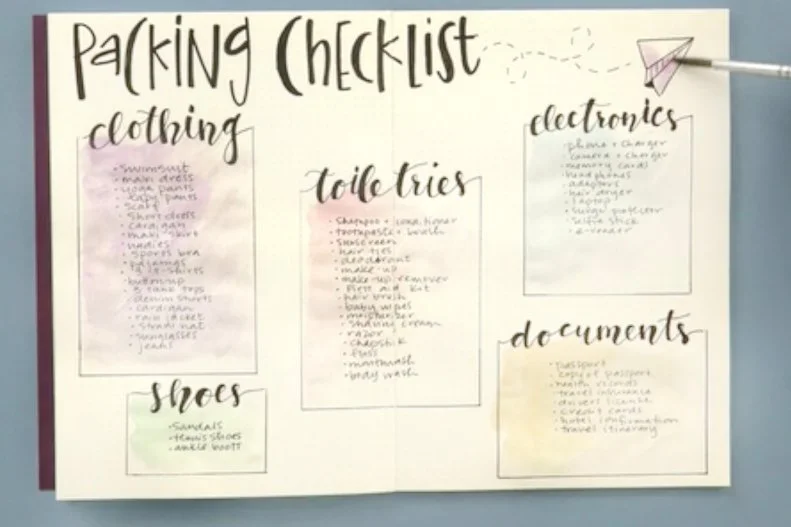 PACKING CHECKLIST
clothing
• swimsuit
• maxi dress
• yoga pants
• scarf
• short dress
• cardigan
• maxi skirt
• undies
• sports bra
• pajamas
• button-up
• 3 tank tops
• denim shorts
• cardigan
• rain jacket
• straw hat
• sunglasses
• jeans
shoes
• sandals
• tennis shoes
• ankle boots
toiletries
• shampoo + conditioner
• toothpaste + brush
• sunscreen
• hair ties
• deodorant
• make-up
• make-up remover
• first aid kit
• hair brush
• baby wipes
• moisturizer
• shaving cream
• razor
• chapstik
• floss
• mouthwash
• body wash
electronics
• phone + charger
• camera + charger
• memory cards
• headphones
• adapters
• hair dryer
• laptop
• surge protector
• selfie stick
• e-reader
documents
• passport
• copy of passport
• health records
• travel insurance
• drivers license
• credit cards
• hotel confirmation
• travel itinerary